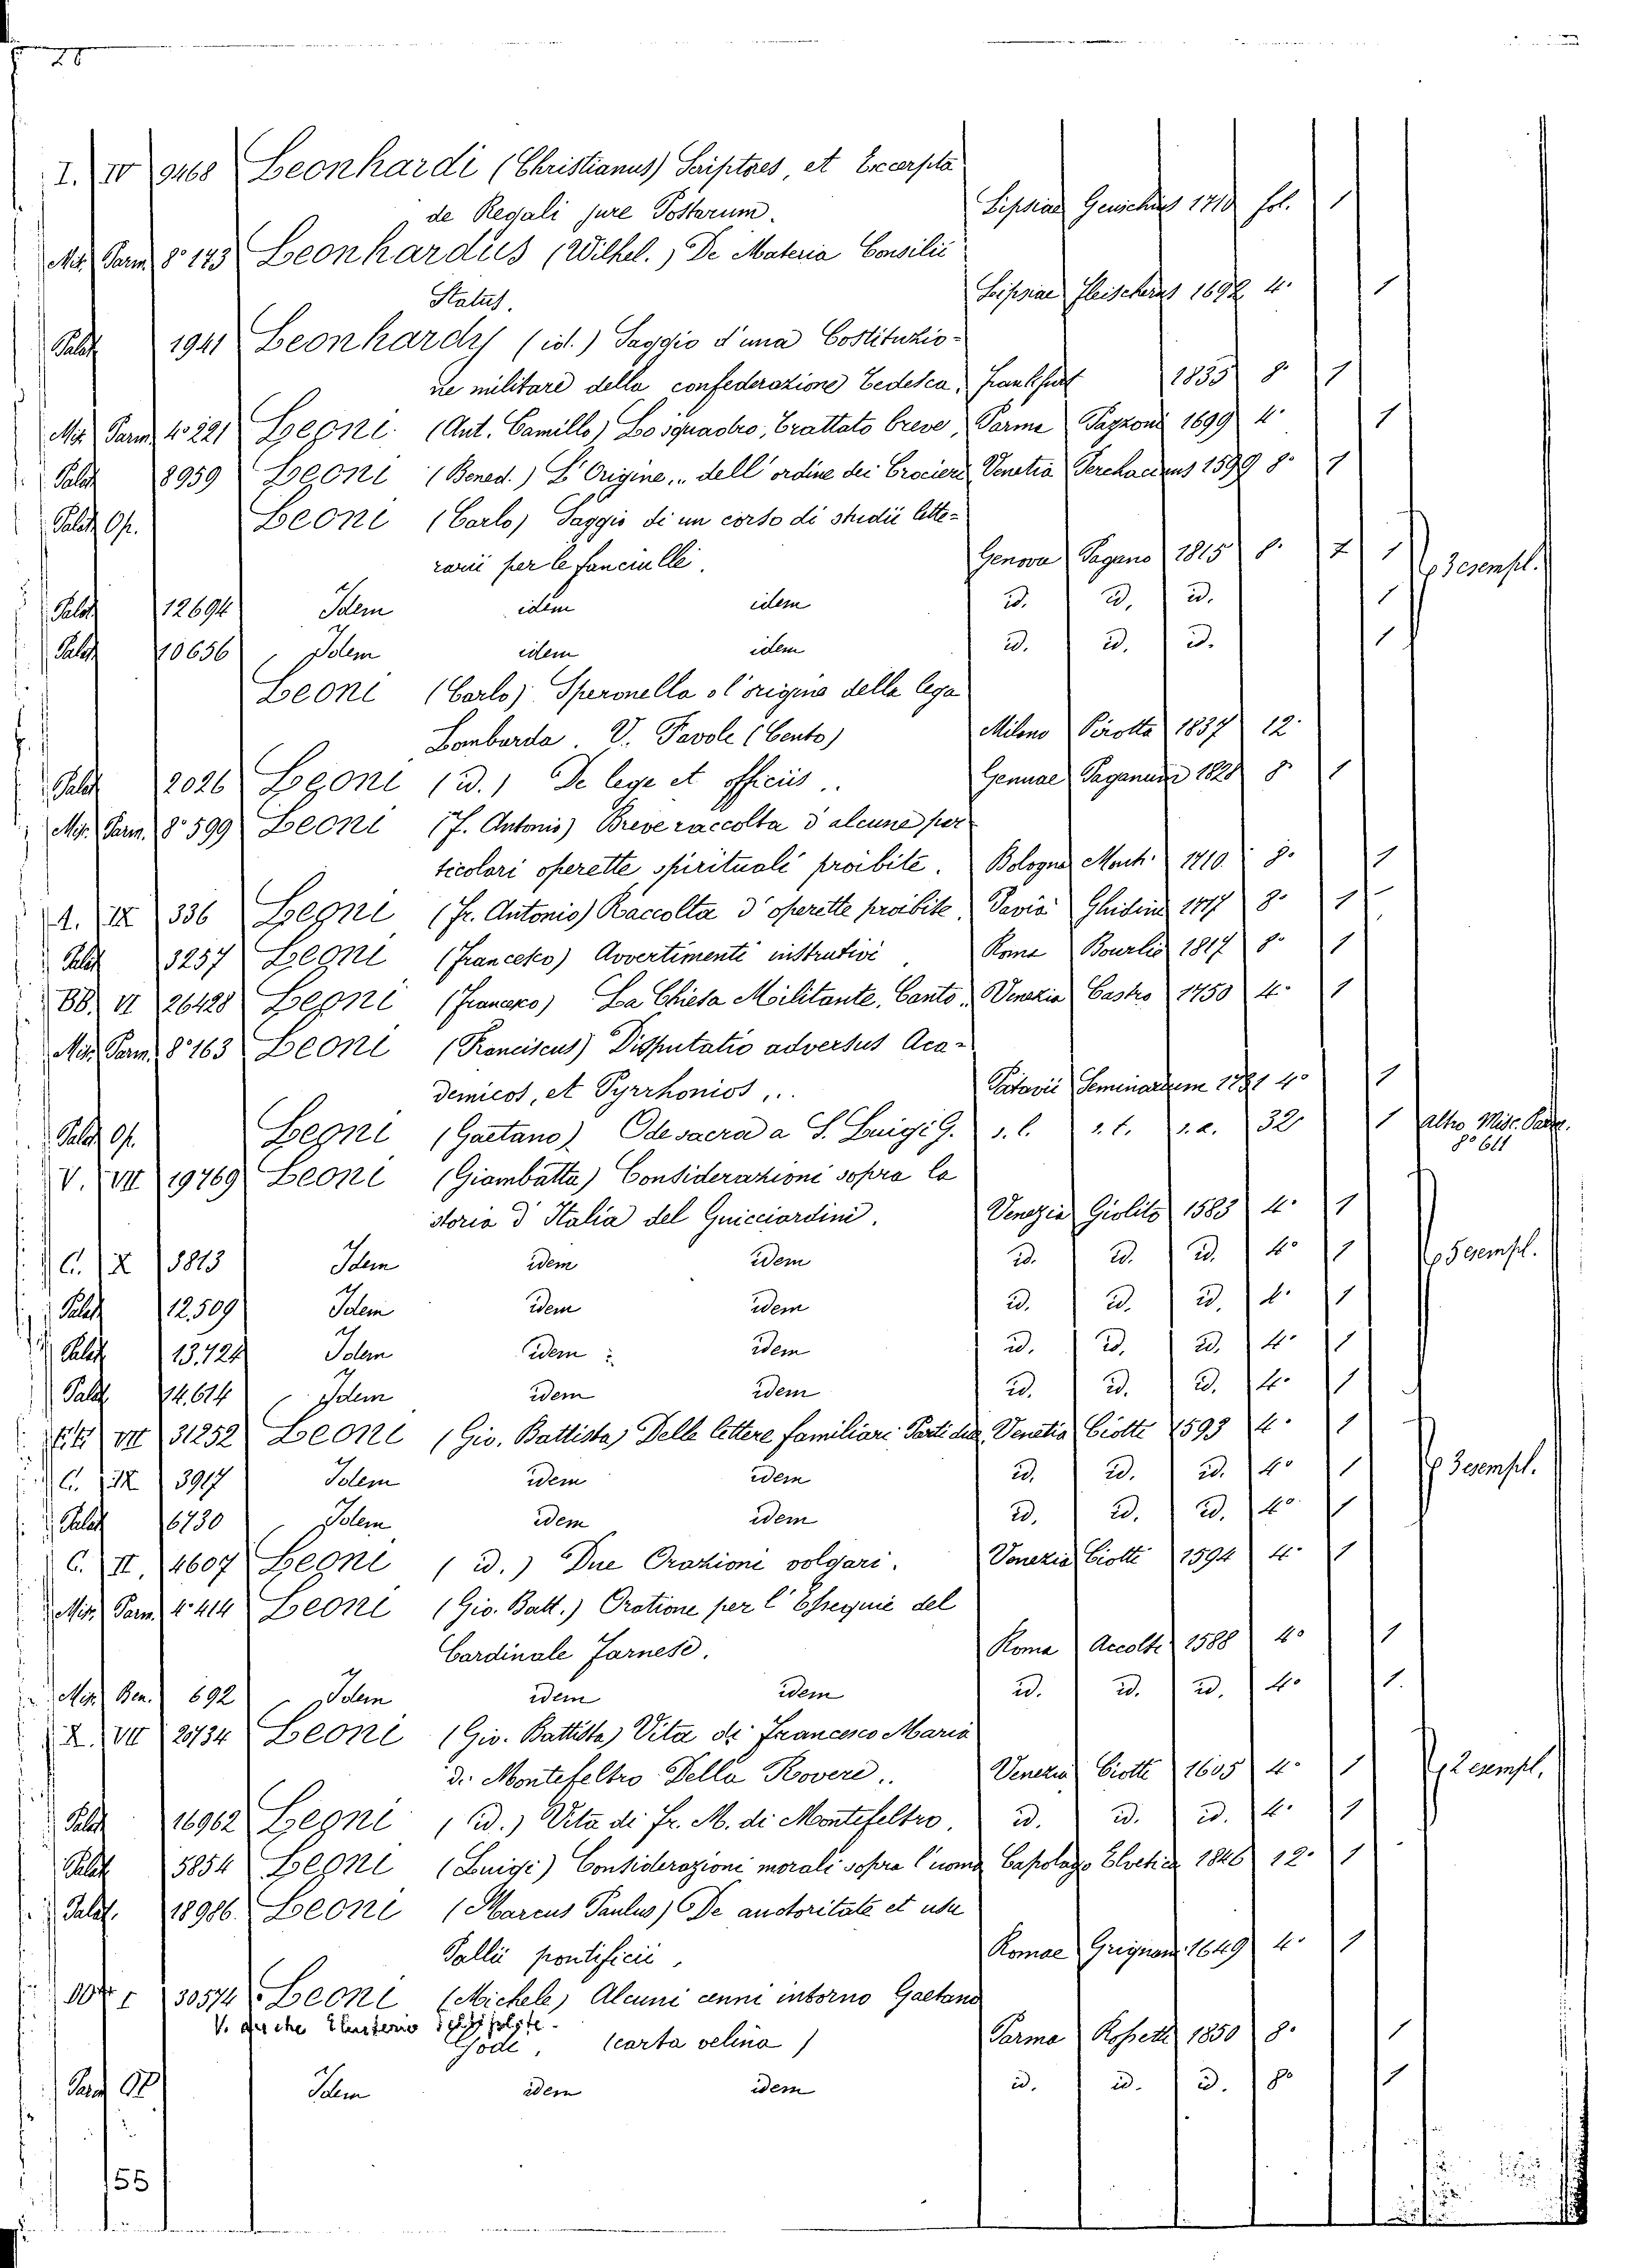 28
I. IV 9468 Leonhardi (Christianus) Scriptores, et Excerpta
de Regali jure Postarum. Lipsiae 1710 fol. 1
Mis. Parm. 8º 143 Leonhardus (Wilhel.) De Materia Consilii
Status. Lipsiae Fleischerus 1692 4º 1
Palat. 1941 Leonhardy (id.) Saggio d'una Costituzio-
ne militare della confederazione Tedesca, Frankfurt 1835 8º 1
Mis. Parm. 4º 221 Leoni (Ant. Camillo) Lo squadro, Trattato breve, Parma Pazzoni 1699 4º 1
Palat. 8959 Leoni (Bened.) L'Origine,.. dell'ordine dei Crocieri Venetia 1599 8º 1
Palat. Op. Leoni (Carlo) Saggio di un corso di studii lette-
rarii per le fanciulle. Genova Pagano 1815 8. 1 1 3 esempl.
Palat. 12694 Idem idem idem id. id. id. 1
Palat. 10656 Idem idem idem id. id. id. 1
Leoni (Carlo) Speronella o l'origine della lega
Lombarda. V. Tavole (Cento) Milano Pirotta 1837 12º
Palat. 2026 Leoni (id.) De lege et officiis.. Genuae Paganum 1828 8º 1
Mis. Parm. 8º 599 Leoni (F. Antonio) Breve raccolta d'alcune par
ticolari operette spirituali proibite. Bologna Mont. 1710 8º 1
A. IX 336 Leoni (Fr. Antonio) Raccolta d'operette proibite, Pavia Ghidini 1717 8º 1
Palat. 3257 Leoni (Francesco) Avvertimenti instrutivi, Roma Bourlié 1817 8º 1
BB. VI 26428 Leoni (Francesco) La Chiesa Militante. Canto, Venezia Castro 1750 4º 1
Mis. Parm. 8º 163 Leoni (Franciscus) Disputatio adversus Aca-
demicos, et Pyrrhonios,.. Patavii Seminarium 1721 4º 1
Palat. Op. Leoni (Gaetano) Ode sacra a S. Luigi G. s. l. s. t. s. a. 32 1 altro Misc. Parm.
8º 611
V. VII 19769 Leoni (Giambatta) Considerazioni sopra la
storia d'Italia del Guicciardini. Venezia Giolito 1583 4º 1
C. X 3813 Idem idem idem id. id. id. 4º 1 5 esempl.
Palat. 12.509 Idem idem idem id. id. id. 4º 1
Palat. 13.424 Idem idem idem id. id. id. 4º 1
Palat. 14.614 Idem idem idem id. id. id. 4º 1
VII 31252 Leoni (Gio. Battista) Delle lettere familiari Parti due, Venetia Ciotti 1593 4º 1
C. IX 3917 Idem idem idem id. id. id. 4º 1 3 esempl.
Palat. 6730 Idem idem idem id. id. id. 4º 1
C. II. 4607 Leoni (id.) Due Orazioni volgari. Venezia Ciotti 1594 4º 1
Mis. Parm. 4º 414 Leoni (Gio. Batt.) Oratione per l'Essequie del
Cardinale Farnese. Roma Accolti 1588 4º 1
Mis. Ben. 692 Idem idem idem id. id. id. 4º 1.
X. VII 20734 Leoni (Gio. Battista) Vita di Francesco Maria
di Montefeltro Della Rovere.. Venezia Ciotti 1605 4º 1 2 esempl.
Palat. 16962 Leoni (id.) Vita di Fr. M. di Montefeltro. id. id. id. 4º 1
Palat. 5854 Leoni (Luigi) Considerazioni morali sopra l'uomo Capolago Elvetica 1846 12º 1
Palat. 18986. Leoni (Marcus Paulus) De auctoritate et usu
Pallii pontificii, Romae Grignani 1649 4º 1
30574 Leoni (Michele) Alcuni cenni intorno Gaetano
V. anche
Godi, (carta velina) Parma Rossetti 1850 8º 1
Parm Op. Idem idem idem id. id. id. 8º 1
55